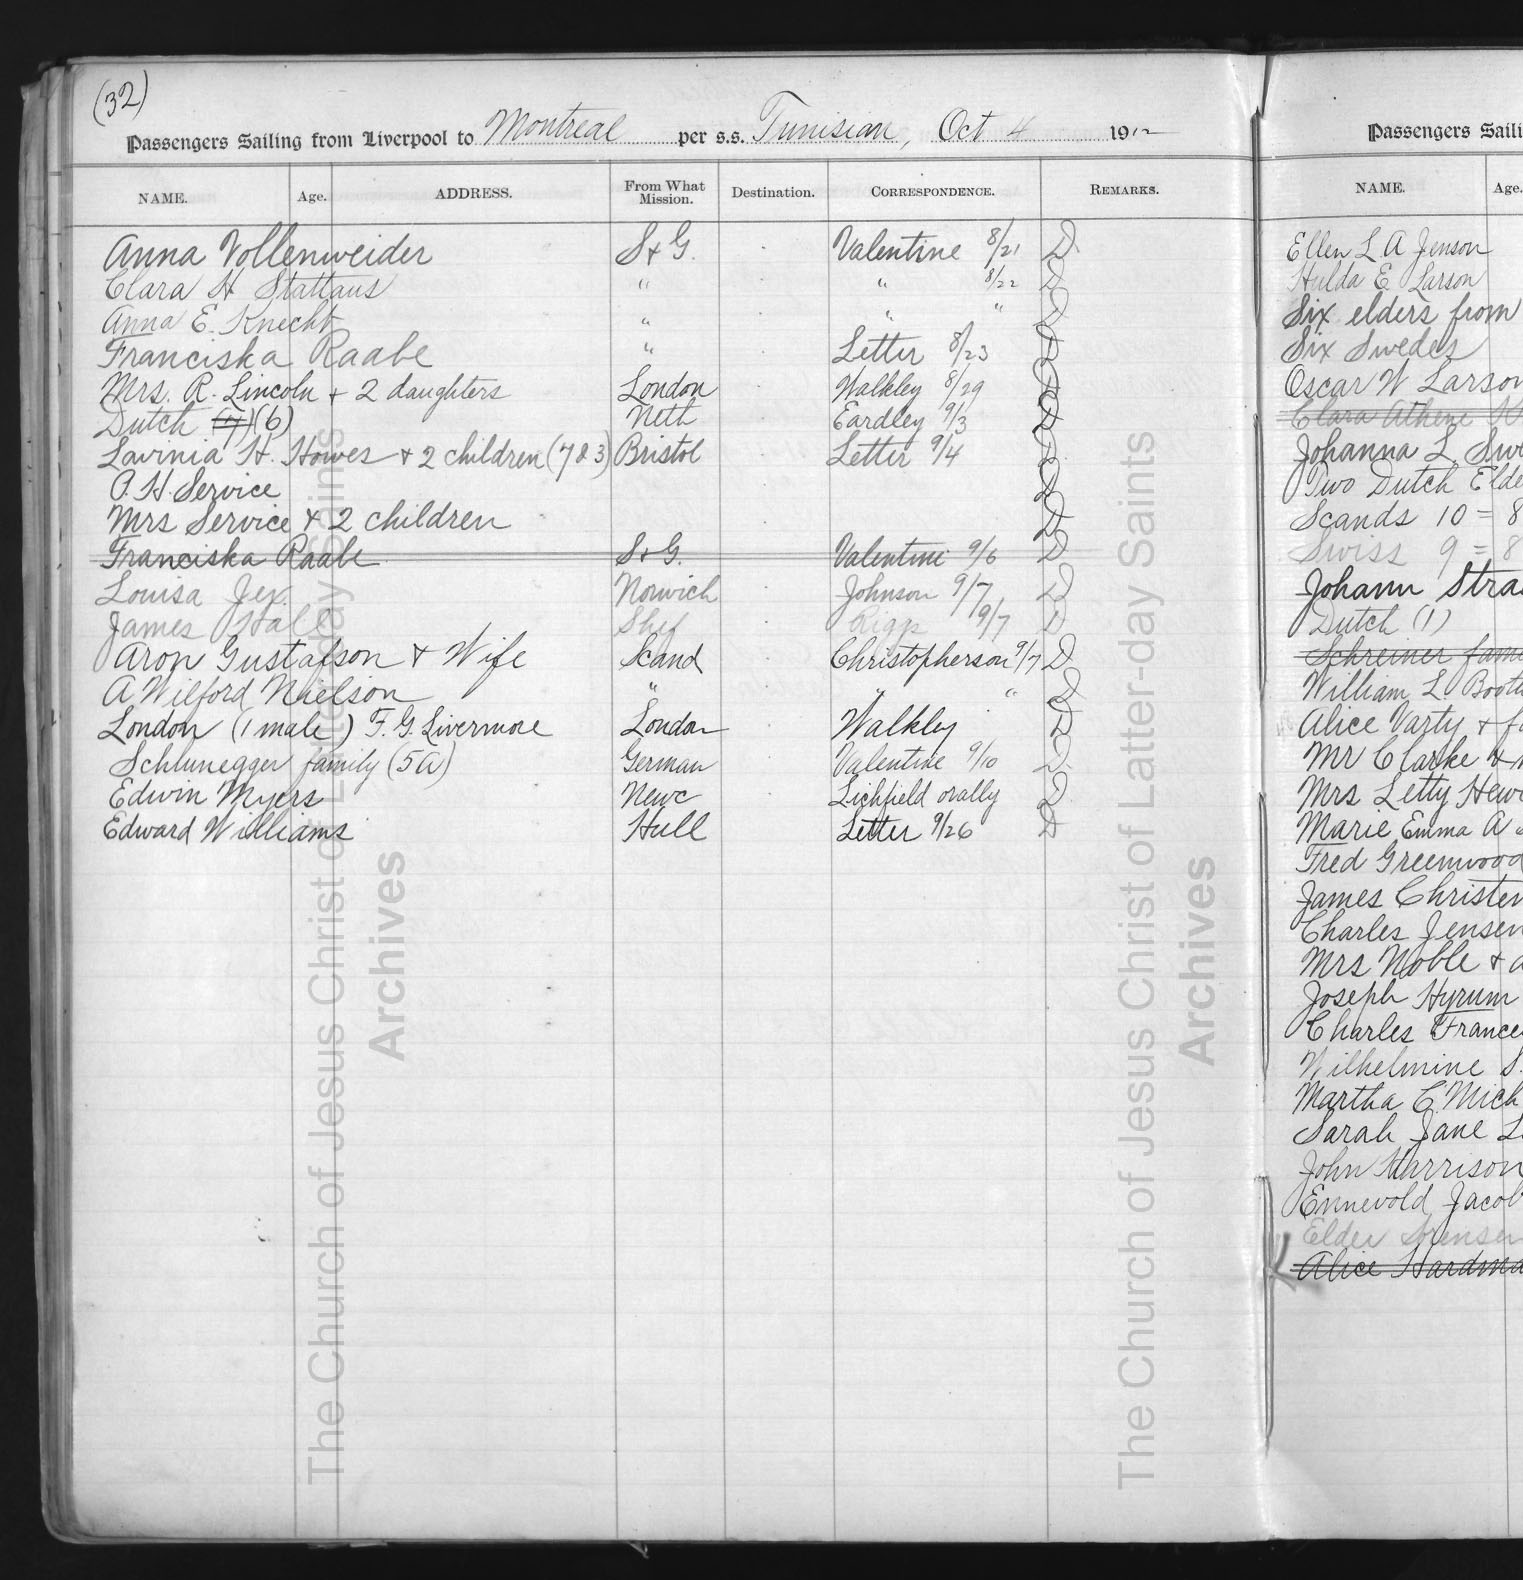 (32)
Passengers Sailing from Liverpool to Montreal per s.s. Tunisian, Oct 4 1912
NAME. Age. ADDRESS. From What Mission. Destination. CORRESPONDENCE. REMARKS.
Anna Vollenweider S & G. Valentine 8/21 D
Clara H Stattaus " " 8/22 D
Anna E. Knecht " " " D
Franciska Raabe " Letter 8/23 D
Mrs. R. Lincoln + 2 daughters London Walkley 8/29 D
Dutch (7) (6) Neth Eardley 9/3 D
Lavinia H. Howes + 2 children (7 & 3) Bristol Letter 9/4 D
O. H. Service D
Mrs Service + 2 children D
Franciska Raabe S & G. Valentine 9/6 D
Louisa Jex Norwich Johnson 9/7 D
James Hall Shef Riggs 9/7 D
Aron Gustafson + Wife Scand Christopherson 9/7 D
A Wilford Nielson " " " D
London (1 male) F. G. Livermore London Walkley D
Schlunegger family (5A) German Valentine 9/10 D
Edwin Myers Newc Lichfield orally D
Edward Williams Hull Letter 9/26 D
Passengers Saili
NAME. Age.
Ellen L A Jenson
Hulda E Larson
Six elders from
Six Swedes
Oscar W Larson
Clara Athene
Johanna L Swe
Two Dutch Elde
Scands 10 = 8
Swiss 9 = 8
Johann Stra
Dutch (1)
Schreiner fami
William L. Booth
Alice Varty + fa
Mr Clarke +
Mrs Letty Hew
Marie Emma A
Fred Greenwood
James Christen
Charles Jensen
Mrs Noble + a
Joseph Hyrum
Charles France
Wilhelmine S.
Martha C. Mich
Sarah Jane L
John Harrison
Ennevold Jacob
Elder Sorensen
Alice Hardma
The Church of Jesus Christ of Latter-day Saints
Archives
The Church of Jesus Christ of Latter-day Saints
Archives